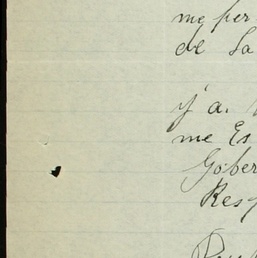 me per
de la
y a.
me Es
Gober
Resp